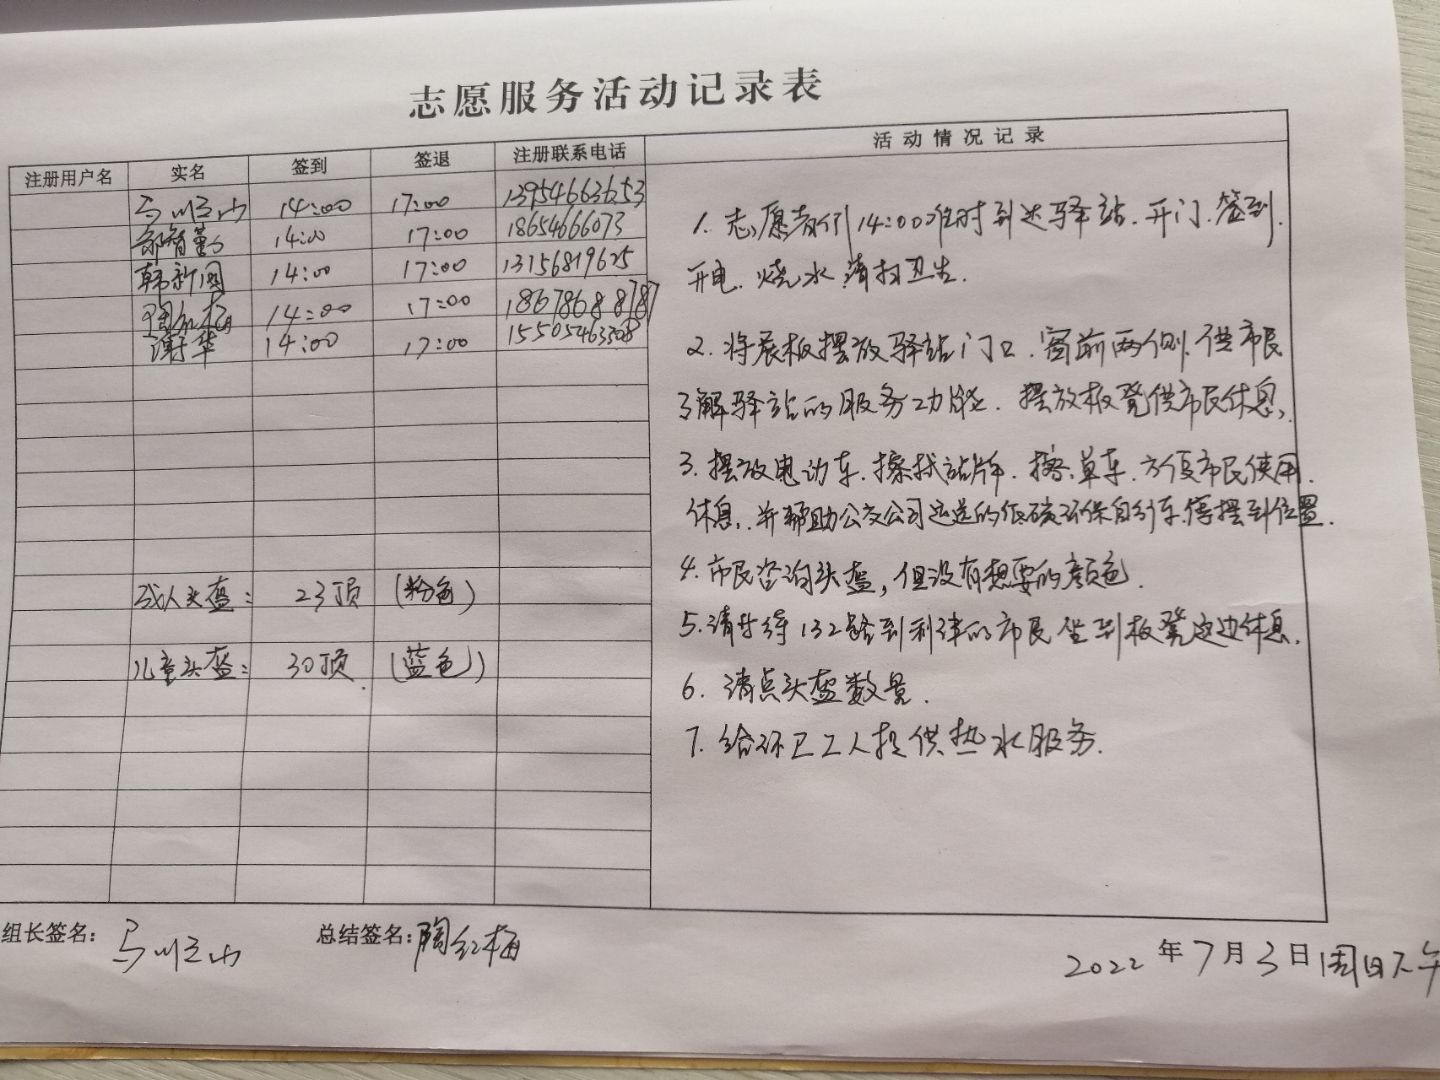 志愿服务活动记录表
注册用户名 实名 签到 签退 注册联系电话 活动情况记录
14:00 17:00 13954663653
14:00 17:00 18654666073
韩新国 14:00 17:00 13156819625
陶红梅 14:00 17:00 18678688787
谢华 14:00 17:00 15505463308
成人头盔: 23顶 (粉色)
儿童头盔: 30顶. (蓝色)
1. 志愿者们14:00准时到达驿站.开门.签到.
开电.烧水.清扫卫生.
2. 将展板摆放驿站门口.窗前两侧.供市民
了解驿站的服务功能. 摆放板凳供市民休息.
3. 摆放电动车.擦拭站牌.擦.单车.方便市民使用.
休息.并帮助公交公司运送的低碳环保自行车.停摆到位置.
4. 市民咨询头盔,但没有想要的颜色.
5. 请等待132路到利津的市民坐到板凳这边休息.
6. 清点头盔数量.
7. 给环卫工人提供热水服务.
组长签名: 总结签名:陶红梅
2022年7月3日周日下午